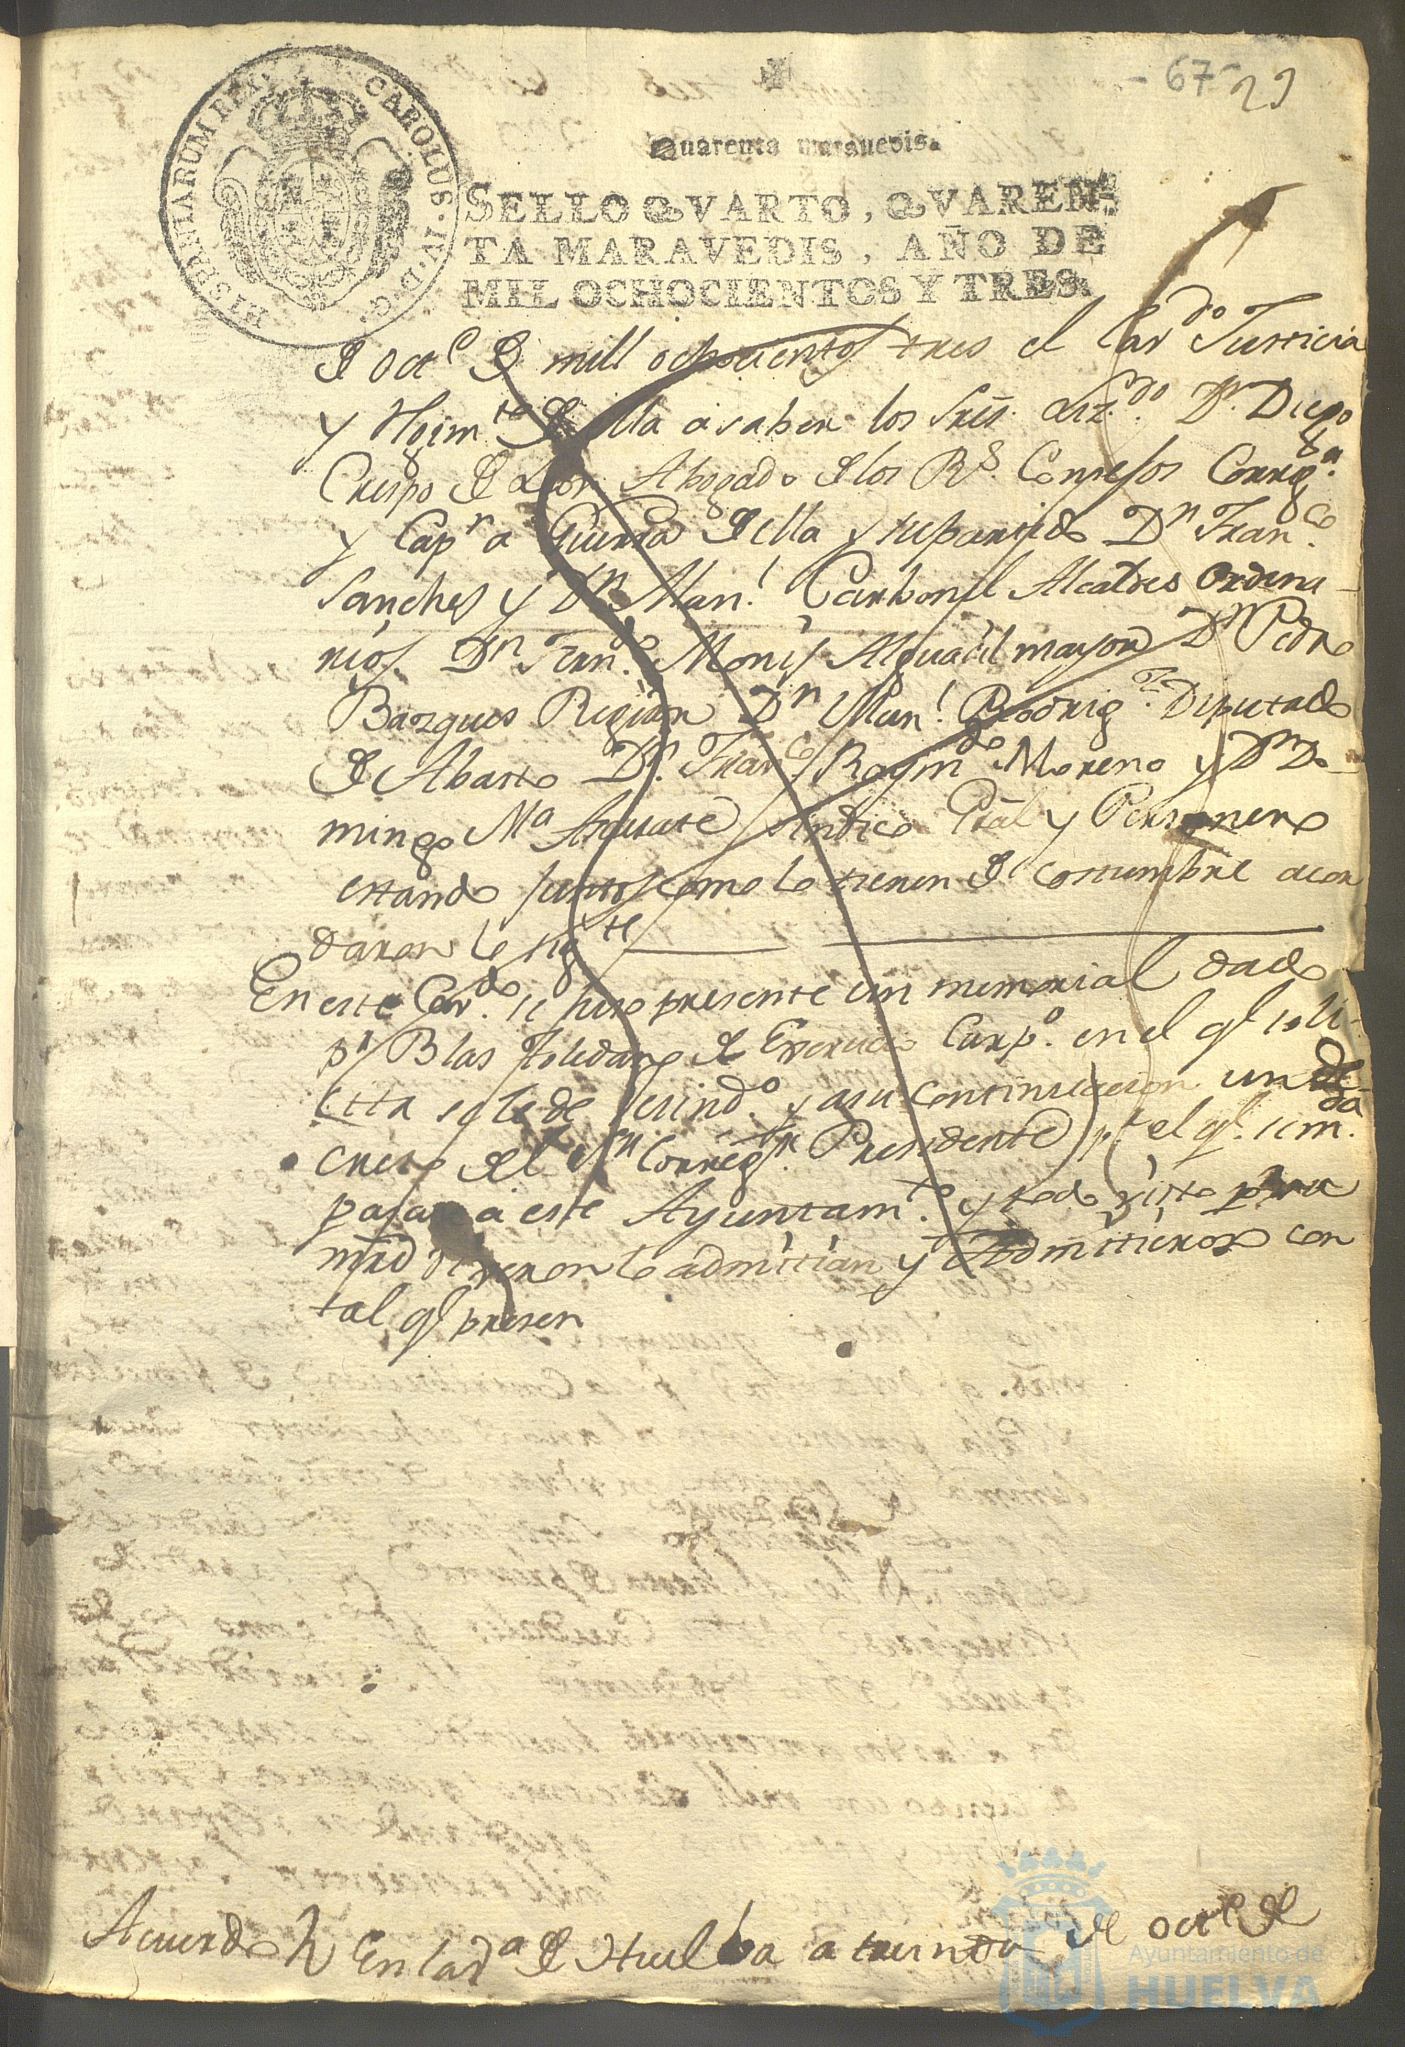 - 67 -
29
HISPANIARUM REX. CAROLUS. IV. D. G.
Quarenta maravedis.
SELLO QVARTO, QVAREN-
TA MARAVEDIS, AÑO DE
MIL OCHOCIENTOS Y TRES.
de octe de mill ochocientos tres el Cavdo Justicia
y Rejimto de ella a saber los Sres Lizdo Dn Diego
Crespo de Abogado de los Rs Consejos Corregr
y Capn a Guerra de ella y su partido Dn Franco
Sanches y Dn Manl Carbonel Alcaldes Ordina-
rios Dn Franco Monis Alguacil mayor Dn Pedro
Bazques Regidor Dn Manl Rodrigz Diputado
de Abasto Dn Franco Raymdo Moreno y Dn Do-
mingo Ma Sindico Pral y Personero
estando juntos como lo tienen de costumbre acor
daron lo sigte
En este Cavdo se hiso presente un memorial dado
pr Blas Toledano de Exercicio Carpo en el ql soli-
citta se le de vecindo y a su continuacion un de
creto del Sr Corregr Presidente pr el ql se mda
pasase a este Ayuntamto y todo visto pr su
mrd dixeron lo admitian y Admitieron con
tal ql presen
Acuerdo En la va de Huelba a treinta de octe de
Ayuntamiento de
HUELVA